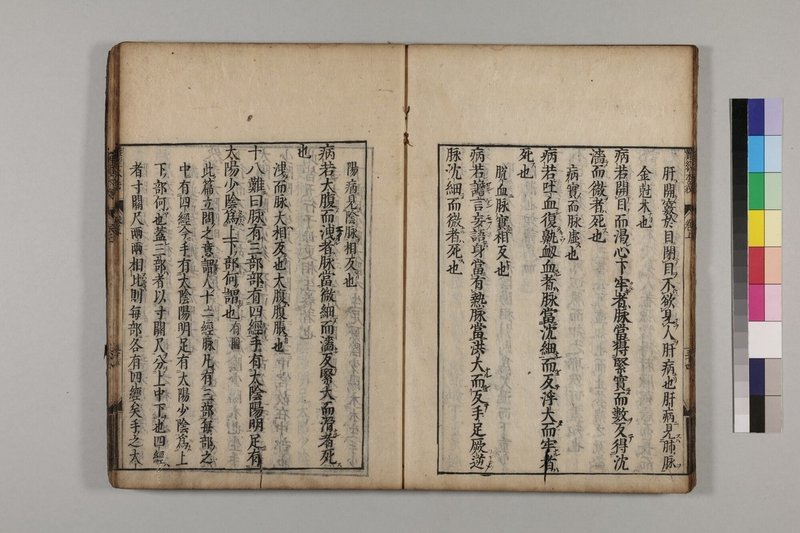 肝開竅於目閉目不欲見人肝病也肝病見肺脉
金尅木也
病若開目而渇心下牢者脉當得緊實而數反得沈
濇而微者死也
病實而脉虚也
病若吐血復鼽衂血者脉當沈細而反浮大而牢者
死也
脱血脉實相反也
病若譫言妄語身當有熱脉當洪大而反手足厥逆
脉沈細而微者死也
陽病見陰脉相反也
病若大腹而洩者脉當微細而濇反緊大而滑者死
也
洩而脉大相反也大腹腹脹也
十八難曰脉有三部部有四經手有太陰陽明足有
太陽少陰爲上下部何謂也
此篇立問之意謂人十二經脉凡有三部每部之
中有四經今手有太陰陽明足有太陽少陰爲上
下部何也蓋三部者以寸關尺分上中下也四經
者寸關尺兩兩相比則每部各有四經矣手之太